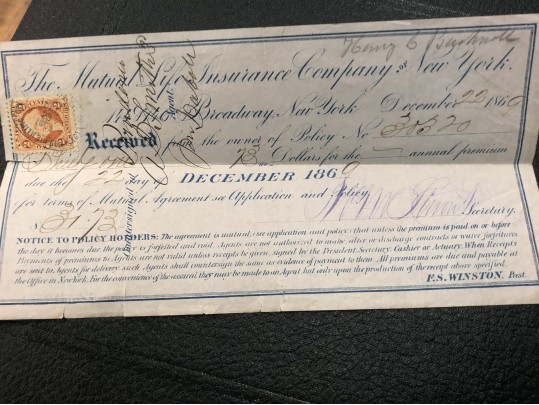 Henry C Bushnell
The Mutual Life Insurance Company of New York.
Broadway, New York December 22 1869
Received for the owner of Policy No 30320
73 Dollars for the annual premium
due the 22 day of DECEMBER 1869
for terms of Mutual Agreement see Application and Policy.
$ 31 73
Secretary.
Countersigned
Agent.
NOTICE TO POLICY HOLDERS: The agreement is mutual, (see application and policy) that unless the premium is paid on or before
the day it becomes due, the policy is forfeited and void. Agents are not authorized to make, alter or discharge contracts or waive forfeitures.
Payments of premiums to Agents are not valid unless receipts be given, signed by the President, Secretary, Cashier or Actuary. When Receipts
are sent to Agents for delivery such Agents shall countersign the same as evidence of payment to them. All premiums are due and payable at
the Office in New York. For the convenience of the assured they may be made to an Agent but only upon the production of the receipt above specified.
F.S. WINSTON, Prest.